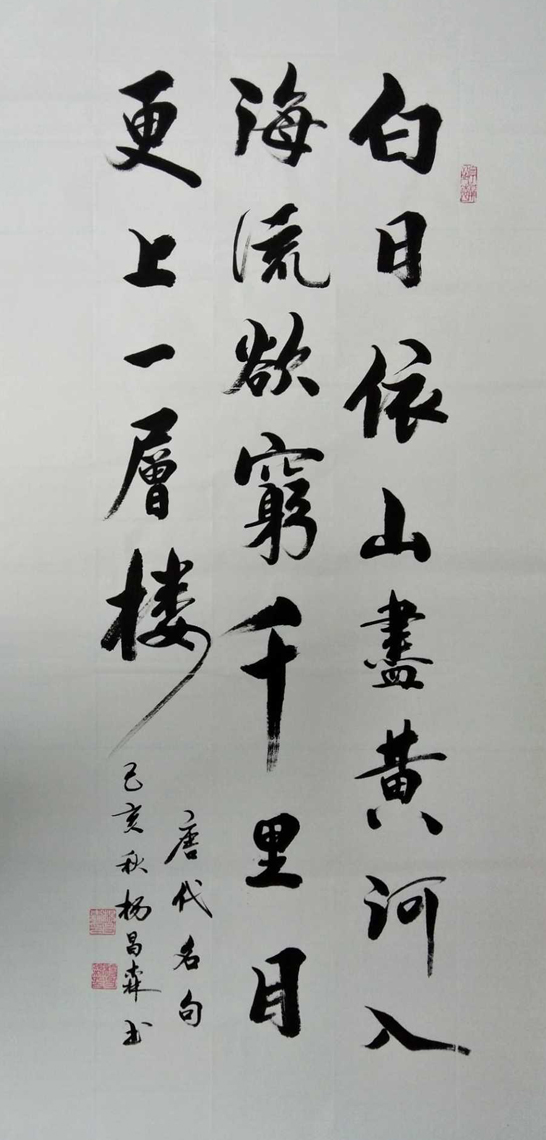 白日依山盡黄河入
海流欲窮千里目
更上一層楼
唐代名句
己亥秋杨昌霖书